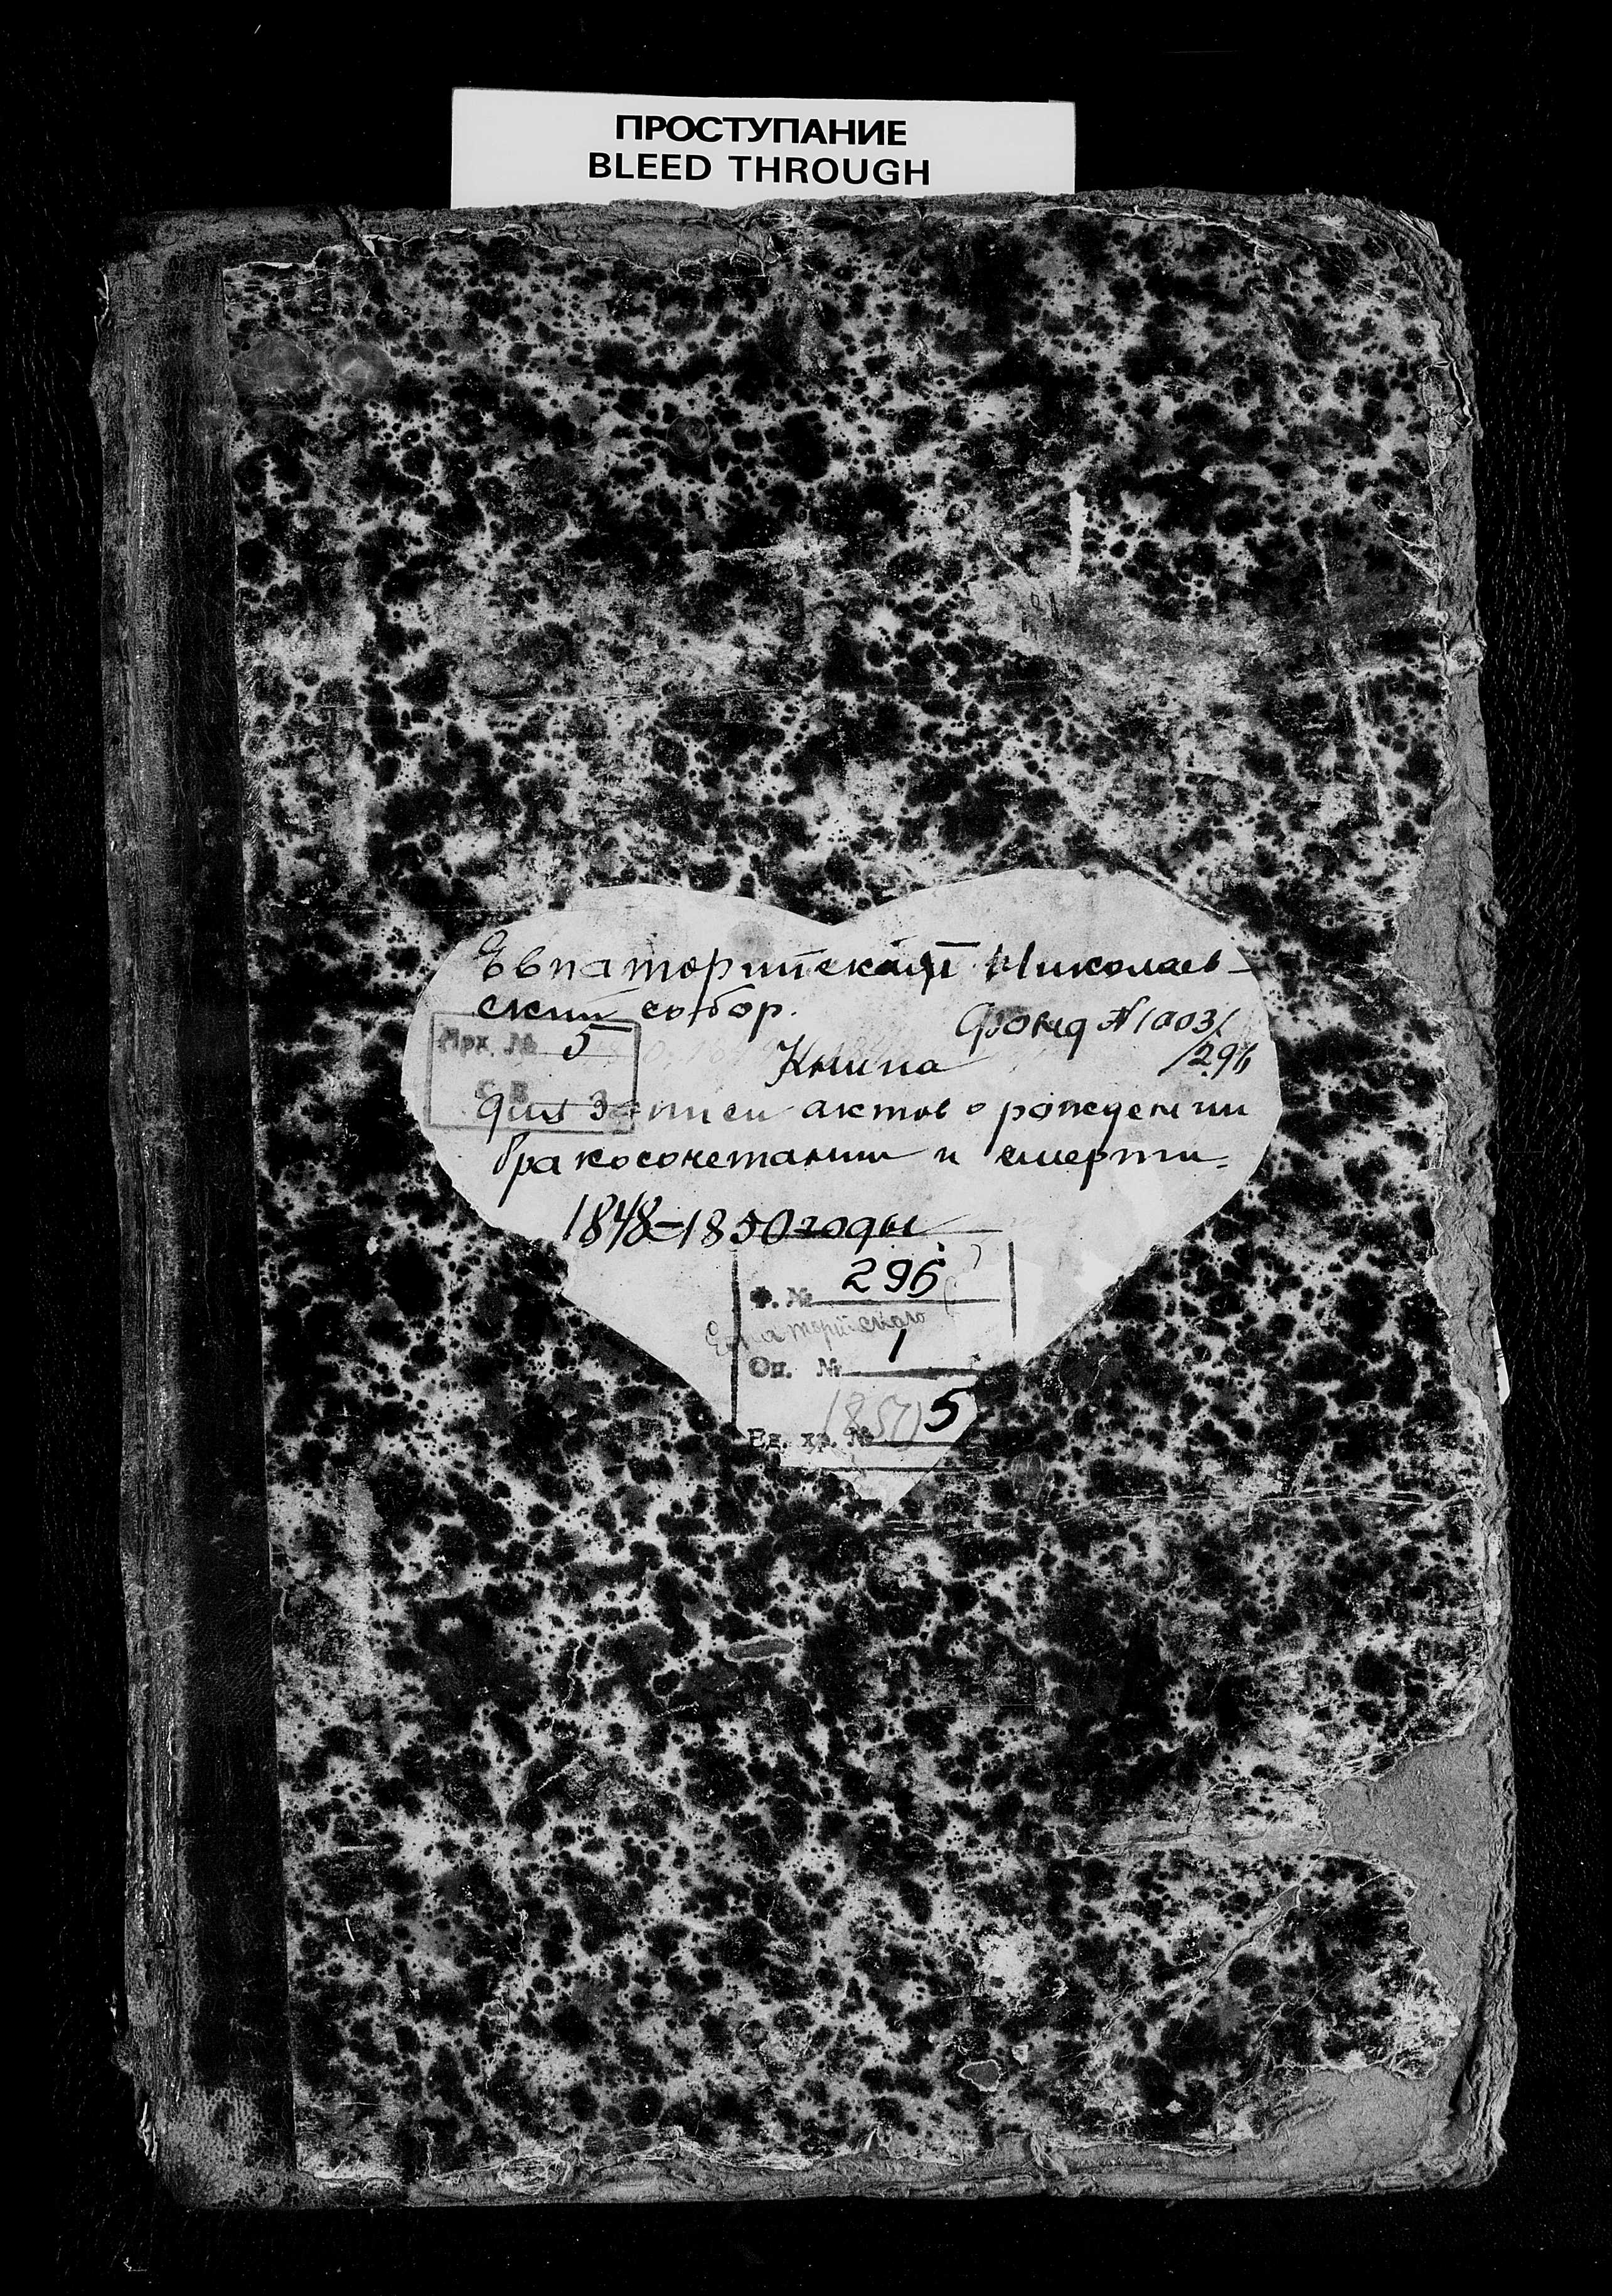 ПРОСТУПАНИЕ
BLEED THROUGH
Евпаторийский Николаев-
ский собор.
Фонд № 1003/
/296
Арх. № 5
Книга
для записи актов о рождении
бракосочетании и смерти.
1848-1850 годы
Ф. № 296
Евпаторийского
Оп. № 1
1850
Ед. хр. № 5